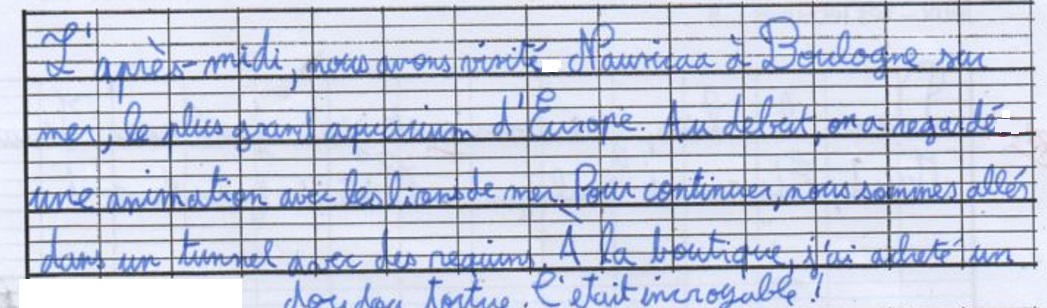 L'après-midi, nous avons visité Nausicaa à Boulogne sur
mer, le plus grand aquarium d'Europe. Au debut, on a regardé
une animation avec les lions de mer. Pour continuer, nous sommes allés
dans un tunnel avec des requins. À la boutique, j'ai acheté un
doudou tortue. C'etait incroyable !